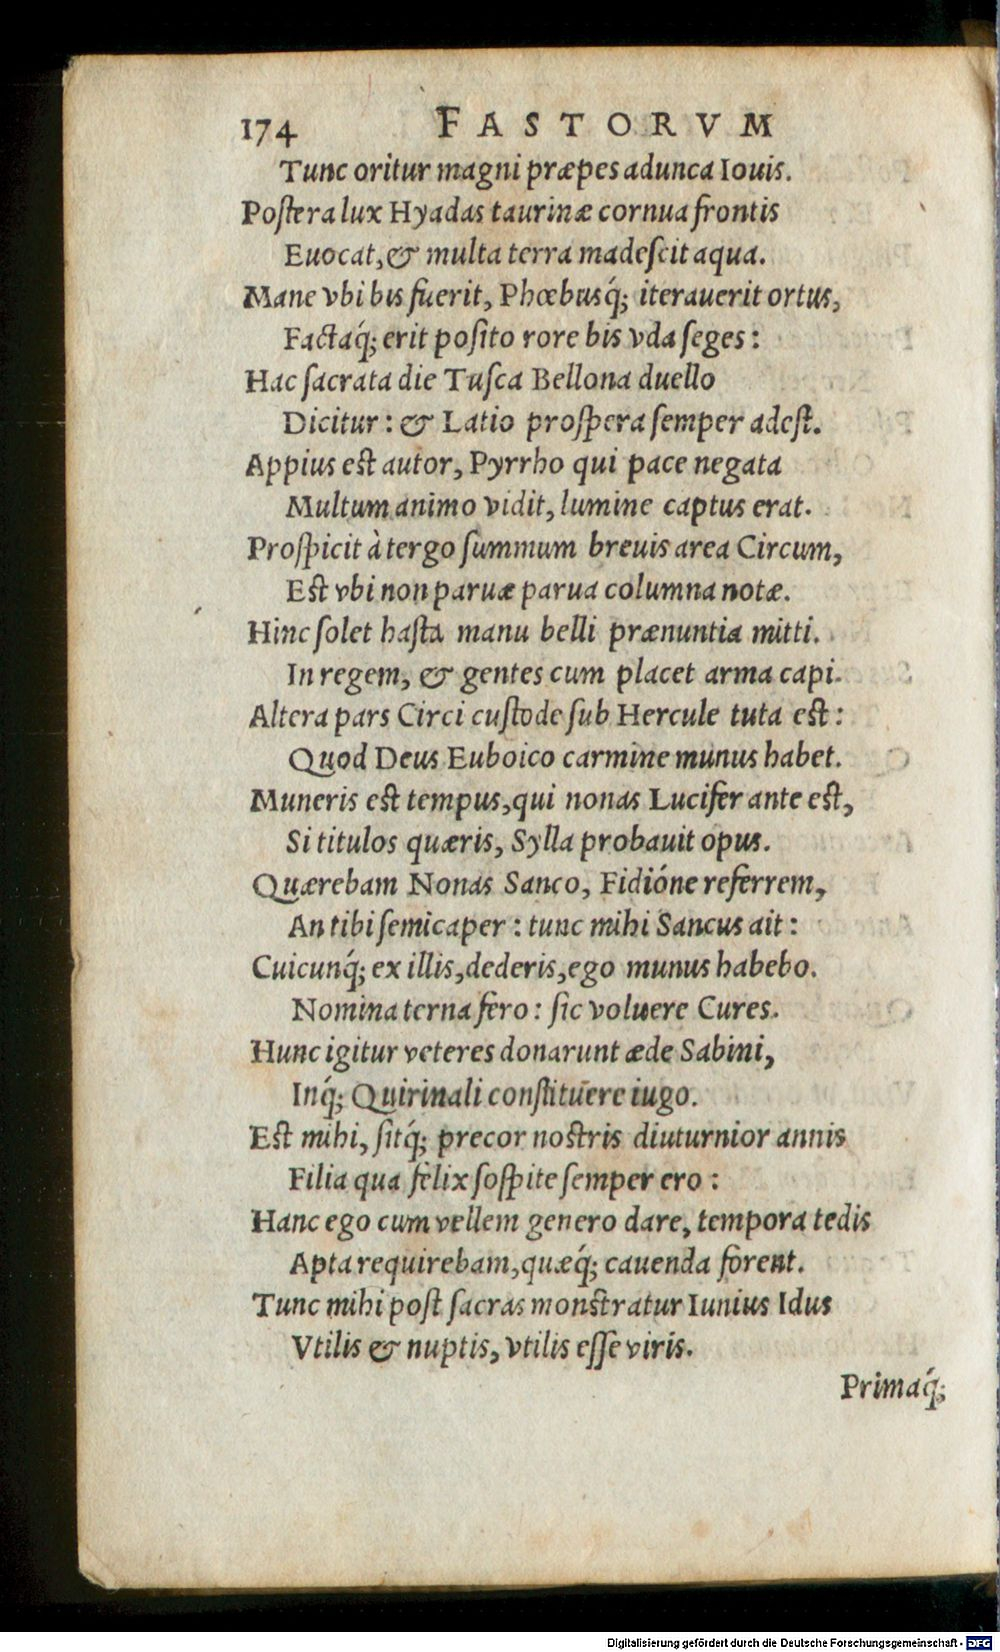 174 FASTORVM
Tunc oritur magni præpes adunca Iouis.
Poſtera lux Hyadas taurinæ cornua frontis
Euocat, & multa terra madeſcit aqua.
Mane vbi bis fuerit, Phœbusq́; iterauerit ortus,
Factaq́; erit poſito rore bis vda ſeges:
Hac ſacrata die Tuſca Bellona duello
Dicitur: & Latio proſpera ſemper adeſt.
Appius est autor, Pyrrho qui pace negata
Multum animo vidit, lumine captus erat.
Proſpicit à tergo ſummum breuis area Circum,
Est vbi non paruæ parua columna notæ.
Hinc ſolet haſta manu belli prænuntia mitti.
In regem, & gentes cum placet arma capi.
Altera pars Circi cuſtode ſub Hercule tuta est:
Quod Deus Euboico carmine munus habet.
Muneris est tempus, qui nonas Lucifer ante est,
Si titulos quæris, Sylla probauit opus.
Quærebam Nonas Sanco, Fidióne referrem,
An tibi ſemicaper: tunc mihi Sancus ait:
Cuicunq́; ex illis, dederis, ego munus habebo.
Nomina terna fero: ſic voluere Cures.
Hunc igitur veteres donarunt æde Sabini,
Inq́; Quirinali conſtituere iugo.
Est mihi, ſitq́; precor nostris diuturnior annis
Filia qua felix ſoſpite ſemper ero:
Hanc ego cum vellem genero dare, tempora tedis
Apta requirebam, quæq́; cauenda forent.
Tunc mihi post ſacras monstratur Iunius Idus
Vtilis & nuptis, vtilis eſſe viris.
Primaq́;
Digitalisierung gefördert durch die Deutsche Forschungsgemeinschaft - DFG